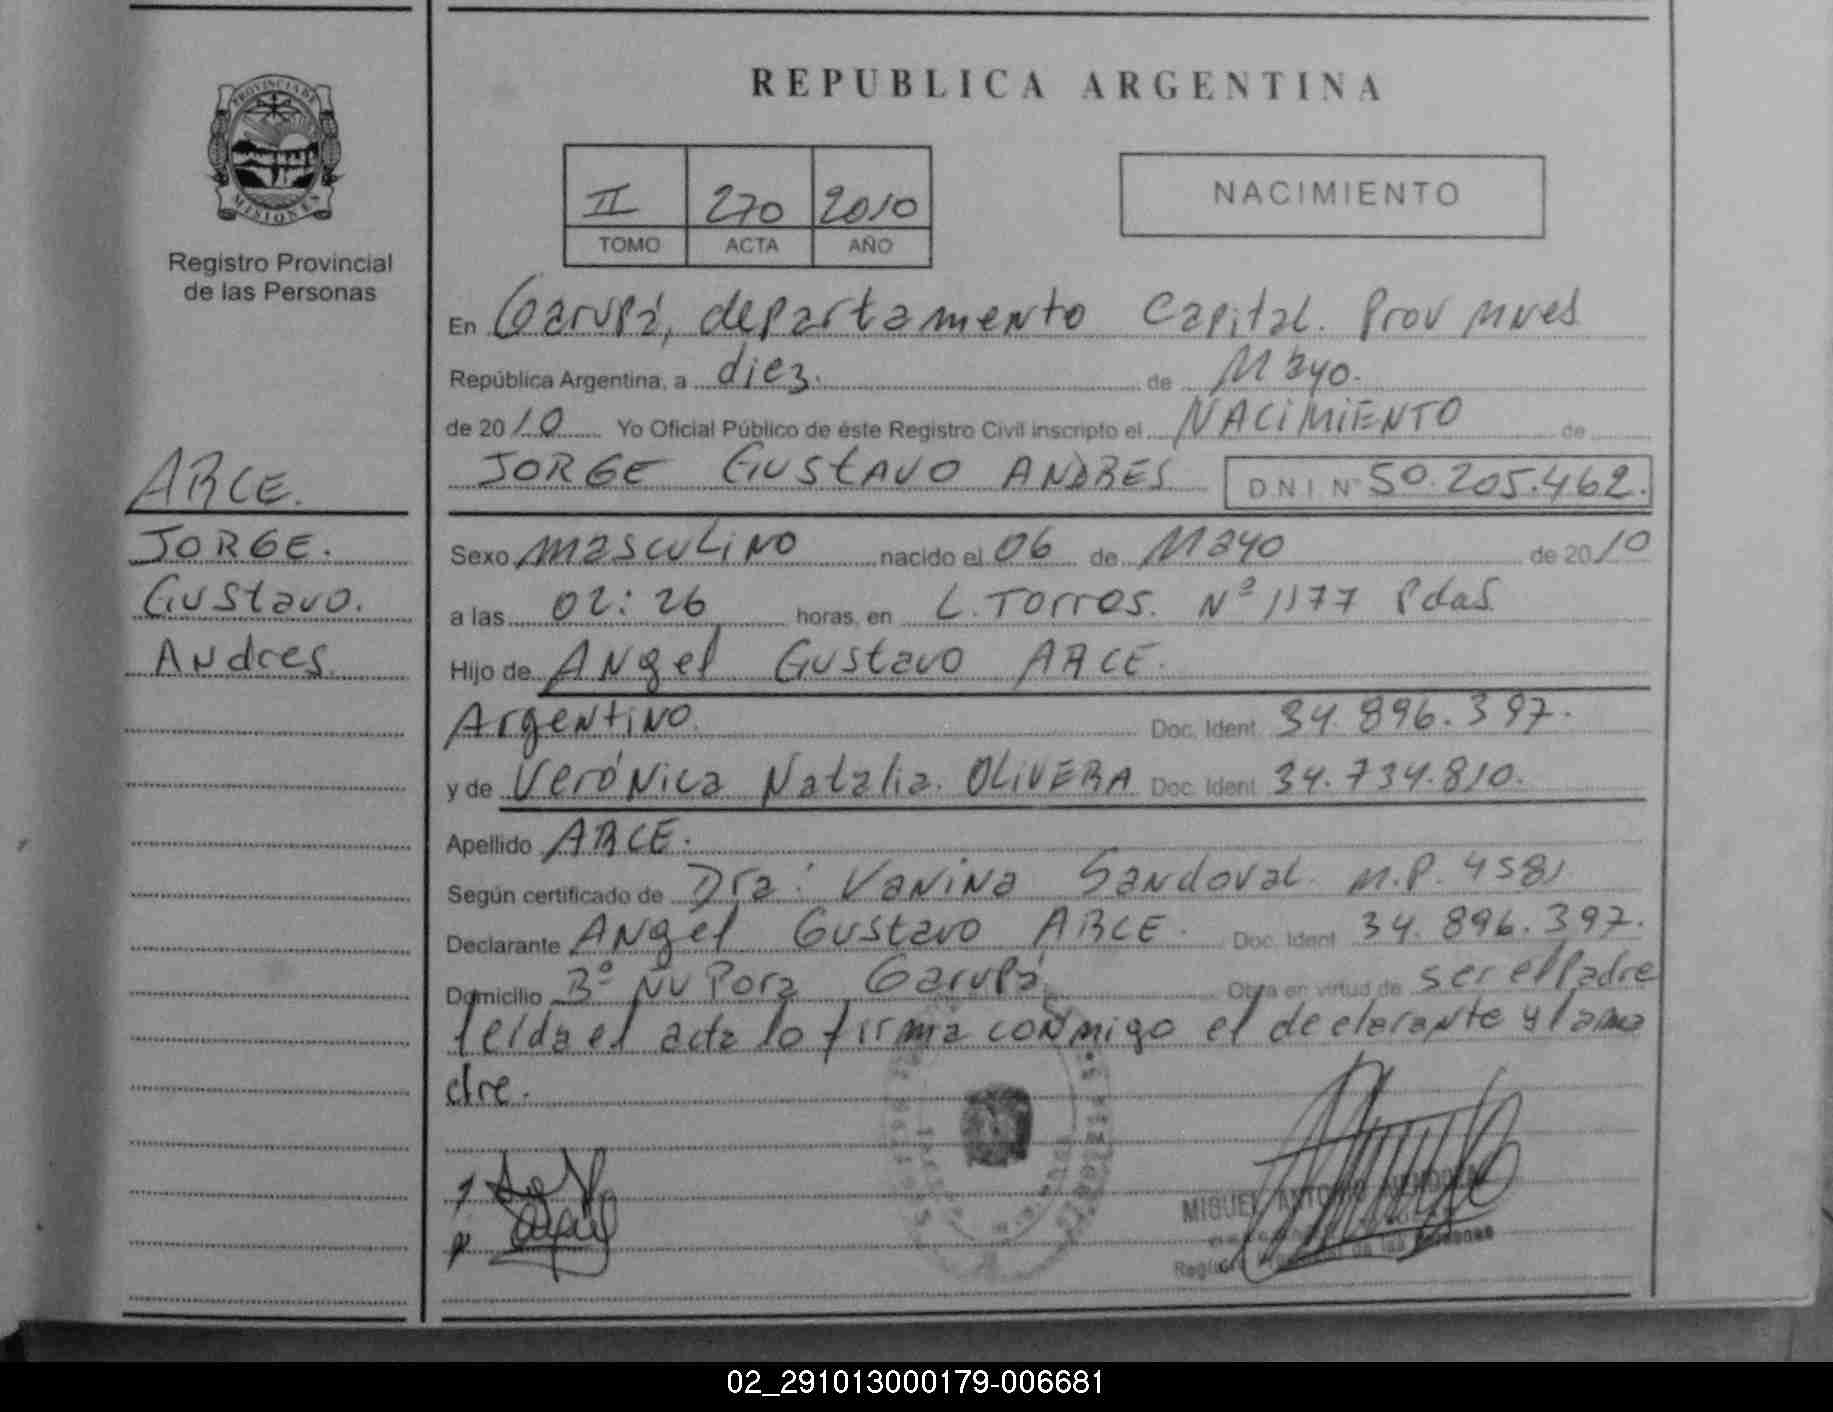 PROVINCIA DE
MISIONES
Registro Provincial
de las Personas
ARCE.
JORGE.
Gustavo.
Andres.
REPUBLICA ARGENTINA
II 270 2010
TOMO ACTA AÑO
NACIMIENTO
En Garupá, departamento Capital. Prov Mnes
República Argentina, a diez. de Mayo.
de 2010 Yo Oficial Público de éste Registro Civil inscripto el NACIMIENTO de
JORGE GUSTAVO ANDRES DNI Nº 50.205.462.
Sexo masculino nacido el 06 de Mayo de 2010
a las 02:26 horas, en L. Torres. Nº 1177 Pdas
Hijo de Angel Gustavo ARCE.
Argentino. Doc. Ident. 34.896.397.
y de Verónica Natalia. OLIVERA Doc. Ident. 34.734.810.
Apellido ARCE.
Según certificado de Dra: Vanina Sandoval. M.P. 4581
Declarante Angel Gustavo ARCE. Doc. Ident. 34.896.397.
Domicilio Bº Ñu Pora Garupá Obra en virtud de ser el Padre
leída el acta lo firma conmigo el declarante y la ma
dre.
MIGUEL ANTONIO
Registro Provincial de las Personas
02_291013000179-006681